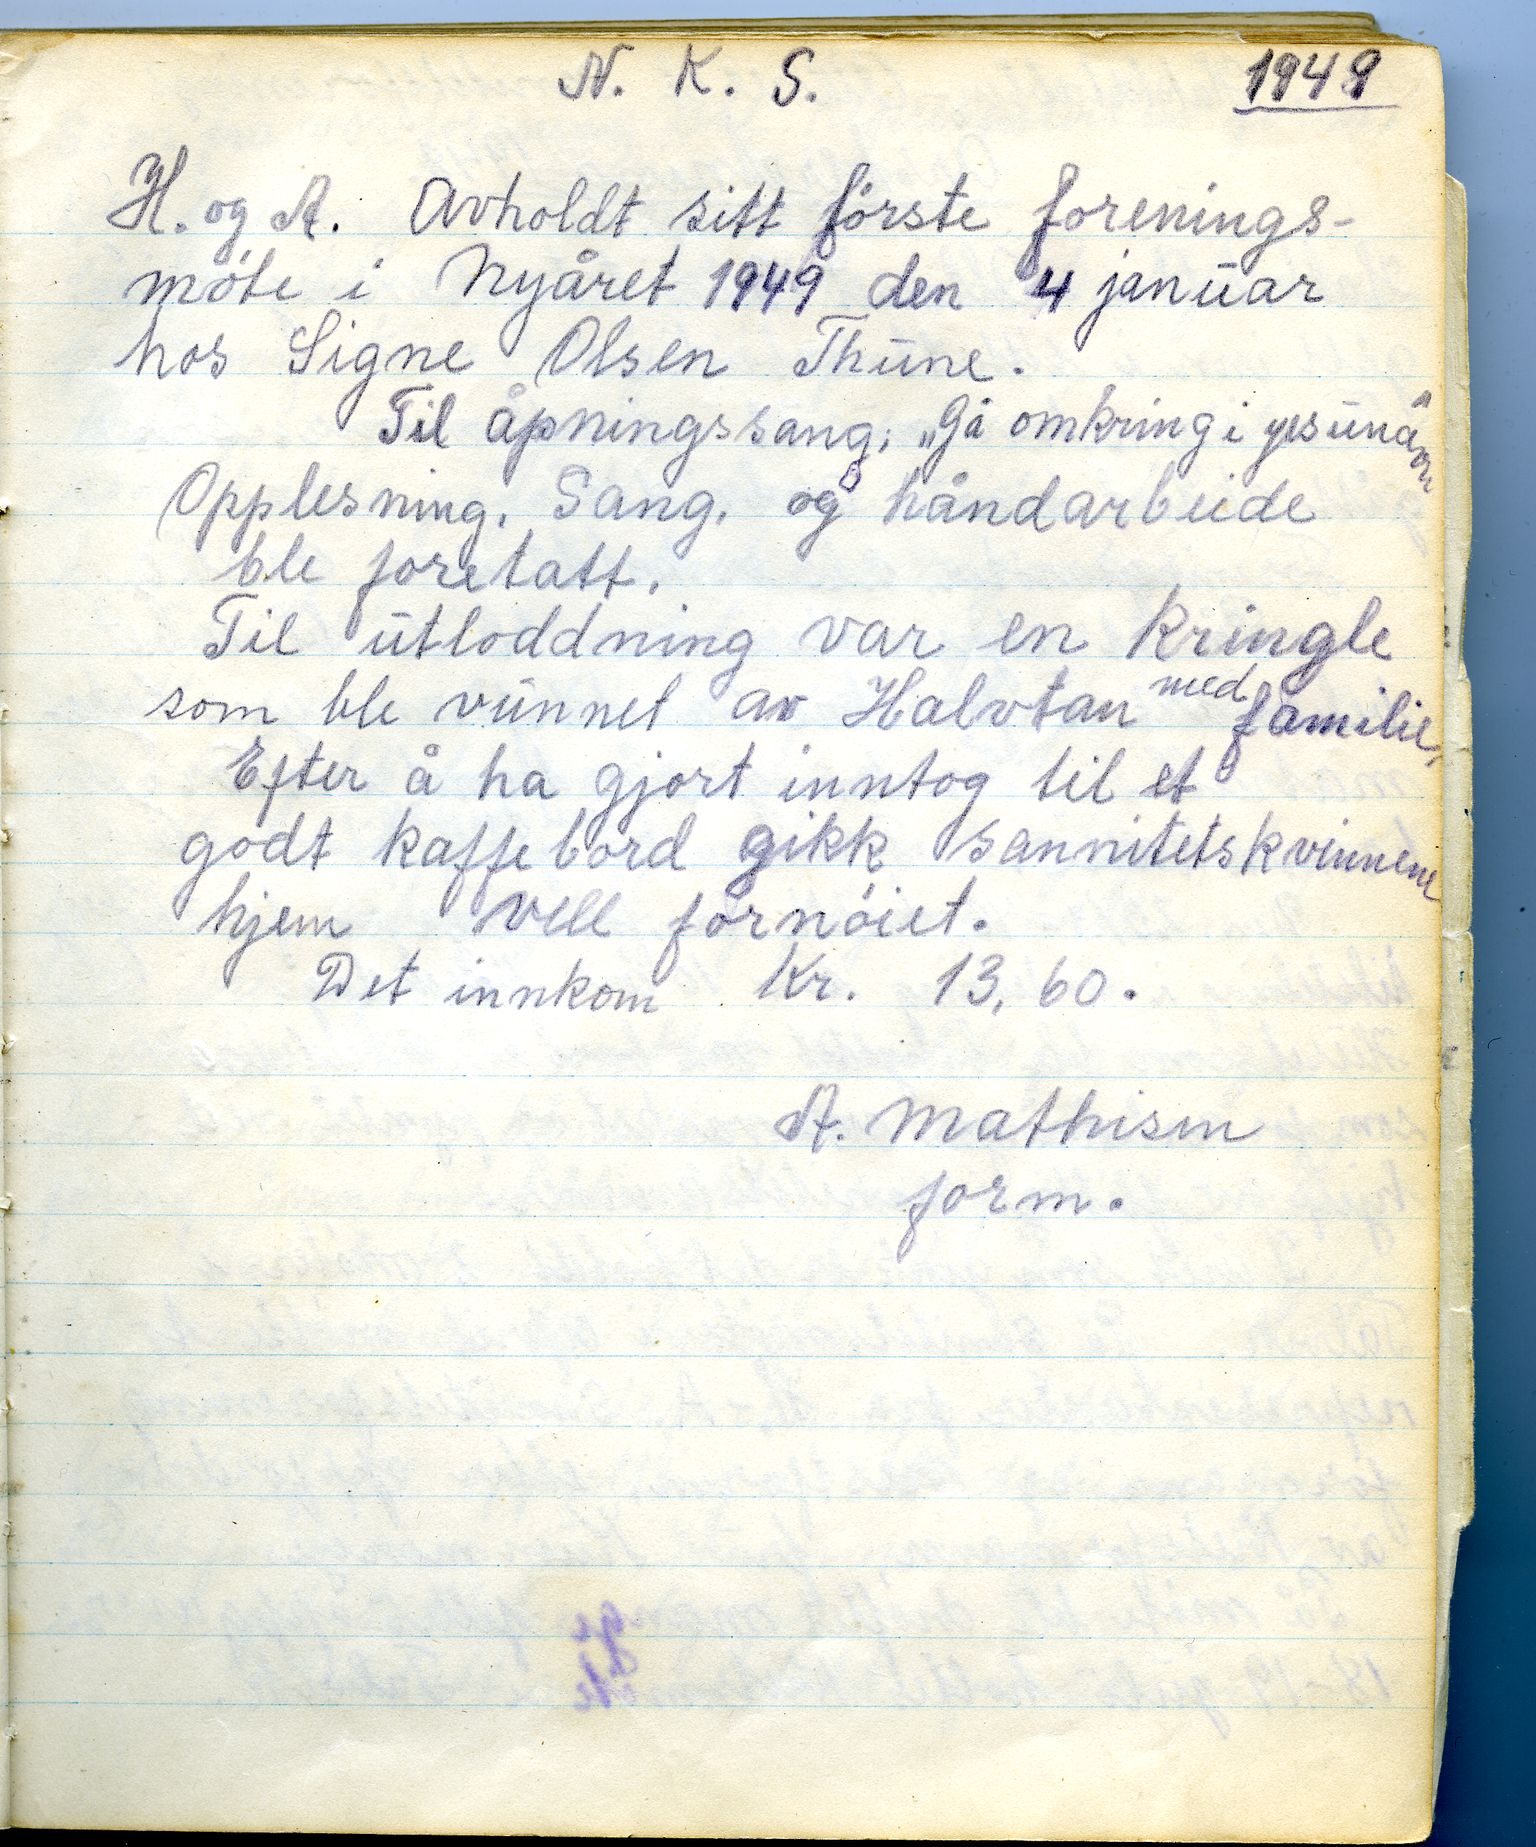 N. K. S.
1949
H. og A. Avholdt sitt første forenings-
møte i Nyåret 1949 den 4 januar
hos Signe Olsen Thune.
Til åpningssang; „Gå omkring i yesu navn"
Opplesning. Sang. og håndarbeide
ble foretatt.
Til utloddning var en kringle
som ble vunnet av Halvtan med familie,
Efter å ha gjort inntog til et
godt kaffebord gikk sannitetskvinnene
hjem vell fornøiet.
Det innkom Kr. 13.60.
A. Mathisen
form.